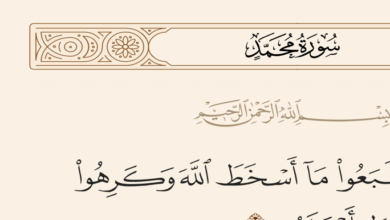 سُورَةُ مُحَمَّدٍ
بِسْمِ اللَّهِ الرَّحْمَٰنِ الرَّحِيمِ
مَآ أَسْخَطَ ٱللَّهَ وَكَرِهُوا۟